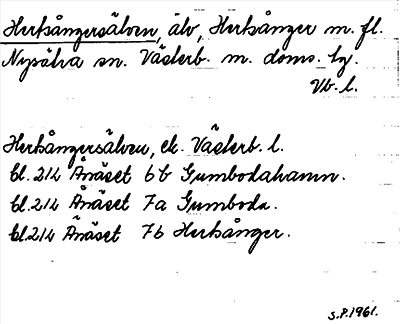 Herksångersälven, älv, Herksånger m. fl.
Nysätra sn. Västerb. m. doms. tg.
Vb. l.
Herksångersälven, ek. Västerb. l.
bl. 214 Ånäset 6b Gumbodahamn.
bl. 214 Ånäset 7a Gumboda.
bl. 214 Ånäset 7b Herksånger.
S.P. 1961.